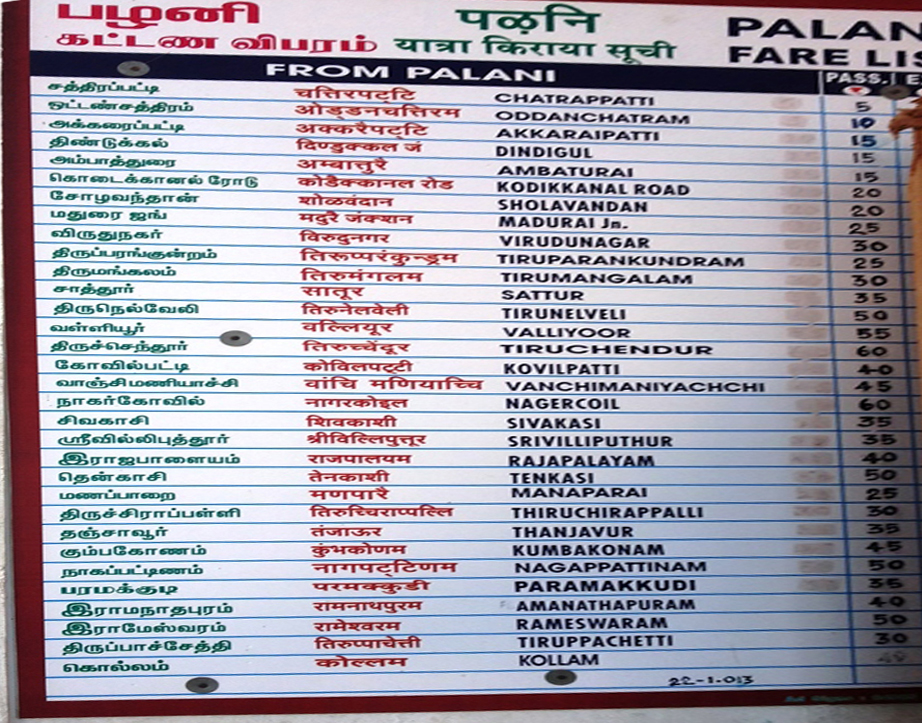 பழனி पळनि PALAN
கட்டண விபரம் यात्रा किराया सूची FARE LIS
FROM PALANI PASS.
சத்திரப்பட்டி चत्तिरपट्टि CHATRAPPATTI 5
ஒட்டன்சத்திரம் ओड्डनचत्तिरम ODDANCHATRAM 10
அக்கரைப்பட்டி अक्करैपट्टि AKKARAIPATTI 15
திண்டுக்கல் दिण्डुक्कल जं DINDIGUL 15
அம்பாத்துரை अम्बात्तुरै AMBATURAI 15
கொடைக்கானல் ரோடு कोडैक्कानल रोड KODIKKANAL ROAD 20
சோழவந்தான் शोळवंदान SHOLAVANDAN 20
மதுரை ஜங் मदुरै जंक्शन MADURAI Jn. 25
விருதுநகர் विरुदुनगर VIRUDUNAGAR 30
திருப்பரங்குன்றம் तिरूप्परंकुन्ड्रम TIRUPARANKUNDRAM 25
திருமங்கலம் तिरुमंगलम TIRUMANGALAM 30
சாத்தூர் सातूर SATTUR 35
திருநெல்வேலி तिरुनेलवेली TIRUNELVELI 50
வள்ளியூர் वल्लियूर VALLIYOOR 55
திருச்செந்தூர் तिरुच्चेंदूर TIRUCHENDUR 60
கோவில்பட்டி कोविलपट्टी KOVILPATTI 40
வாஞ்சிமணியாச்சி वांचि मणियाच्चि VANCHIMANIYACHCHI 45
நாகர்கோவில் नागरकोइल NAGERCOIL 60
சிவகாசி शिवकाशी SIVAKASI 35
ஸ்ரீவில்லிபுத்தூர் श्रीविल्लिपुत्तूर SRIVILLIPUTHUR 35
இராஜபாளையம் राजपालयम RAJAPALAYAM 40
தென்காசி तेनकाशी TENKASI 50
மணப்பாறை मणपारै MANAPARAI 25
திருச்சிராப்பள்ளி तिरुच्चिराप्पल्लि THIRUCHIRAPPALLI 30
தஞ்சாவூர் तंजाऊर THANJAVUR 35
கும்பகோணம் कुंभकोणम KUMBAKONAM 45
நாகப்பட்டிணம் नागपट्टिणम NAGAPPATTINAM 50
பரமக்குடி परमक्कुडी PARAMAKKUDI 35
இராமநாதபுரம் रामनाथपुरम AMANATHAPURAM 40
இராமேஸ்வரம் रामेश्वरम RAMESWARAM 50
திருப்பாச்சேத்தி तिरुप्पाचेत्ती TIRUPPACHETTI 30
கொல்லம் कोल्लम KOLLAM
22-1-013